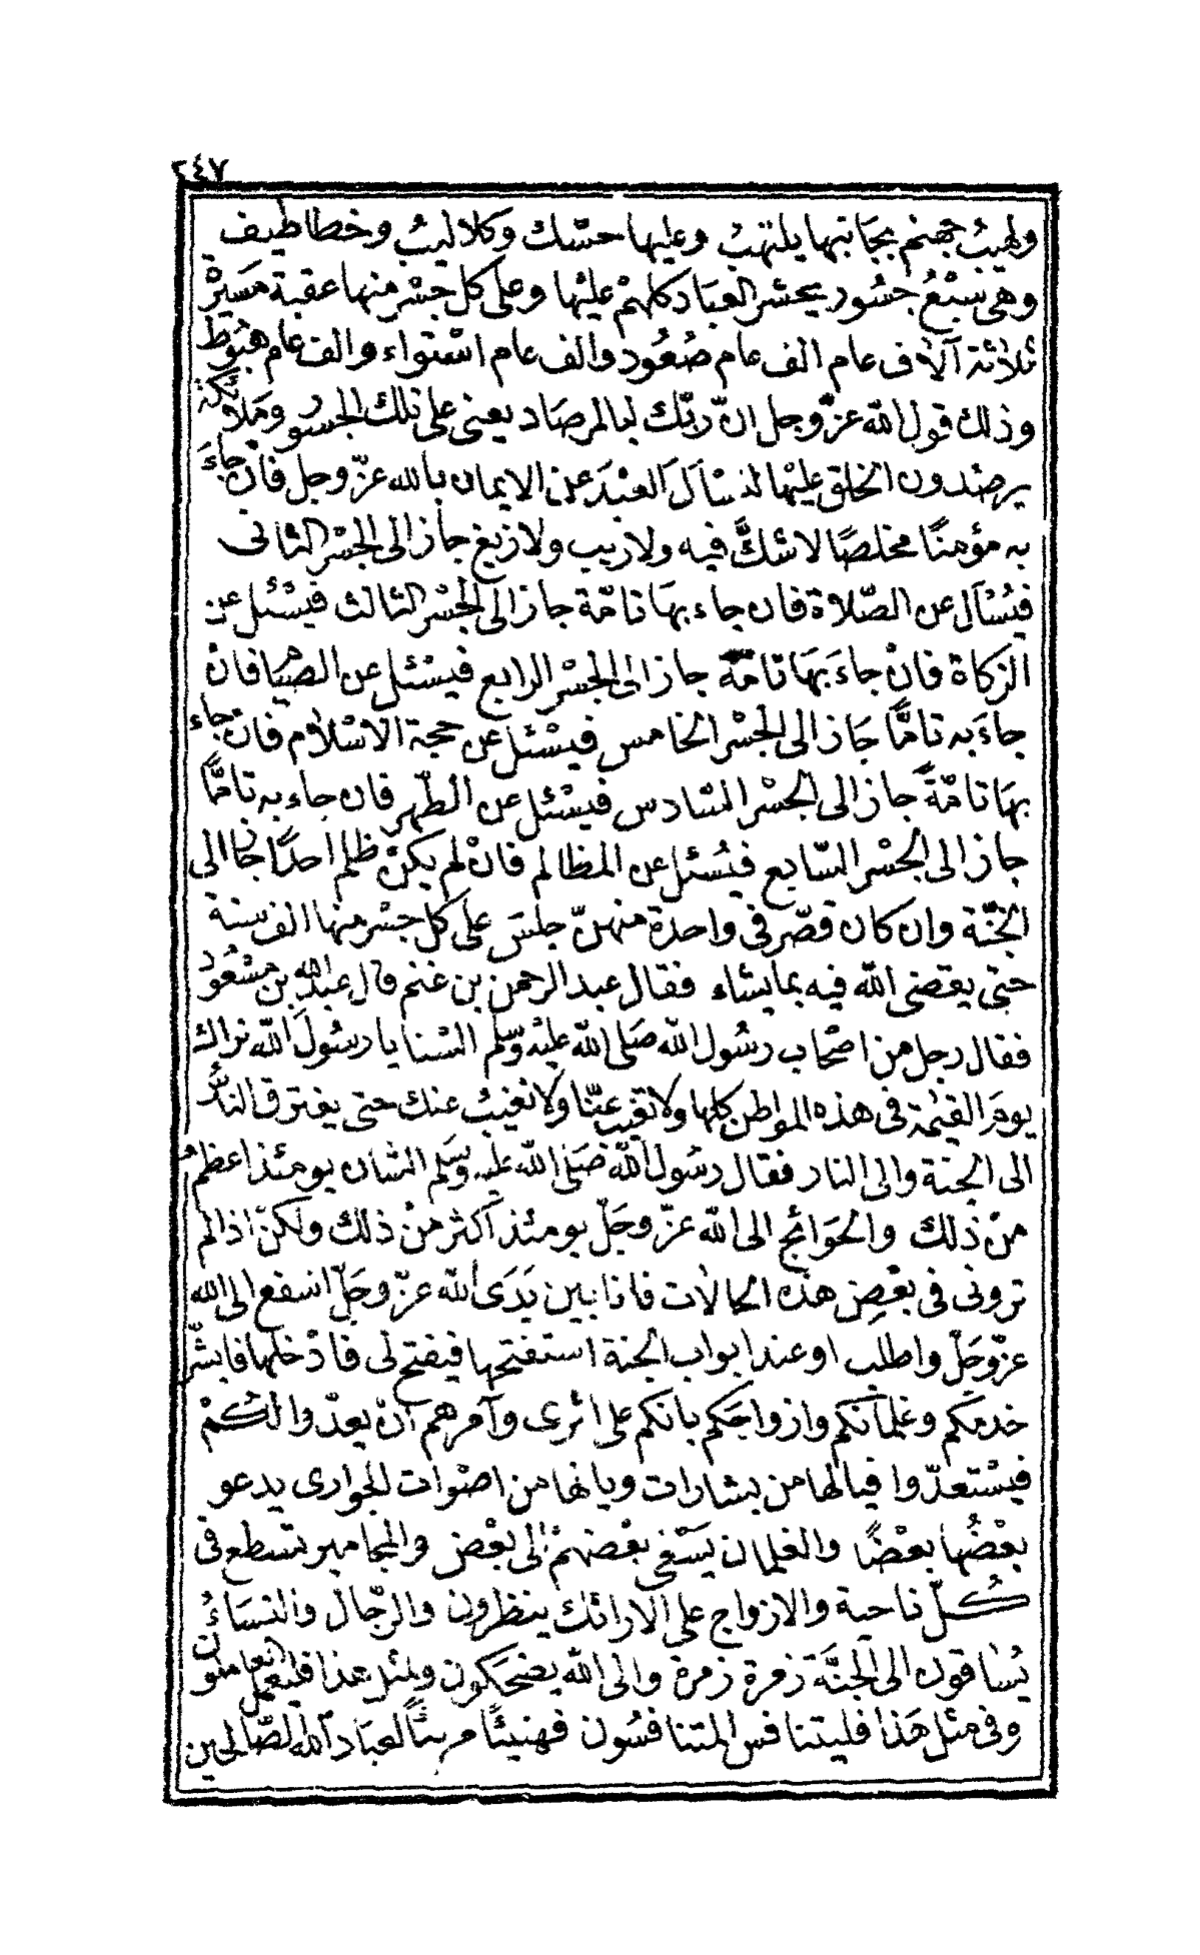 ٢٤٧
ولهيبُ جهنم بجانبها يلتهبُ وعليها حسّك وكلاليبُ وخطاطيف
وهى سبْعُ جسُور يحشر العبَاد كلهمْ عليْها وعلى كل جسْر منها عقبة مَسيرْ
ثلاثة آلاف عام الف عام صُعُود والف عام اسْتواء والف عام هبُوط
وذلك قول الله عزّ وجل انّ ربّك لبالمرصَاد يعنى على تلك الجسُور وملائكة
يرصُدون الخلق عليْها لتسْأل العبْدَ عن الايمان بالله عزّ وجل فانْ جاءَ
به مؤمنًا مخلصًا لا شكّ فيه ولا ريب ولا زيغ جاز الى الجسْر الثانى
فيُسْأل عن الصّلاة فان جاء بهَا تامّة جاز الى الجسْر الثالث فيسْئل عن
الزكاة فانْ جاءَ بهَا تامّة جاز الى الجسْر الرابع فيسْئل عن الصيَام فانْ
جاءَ به تامًّا جَاز الى الجسْر الخامس فيسْئل عن حجة الاسْلام فانْ جاء
بهَا تامّةً جاز الى الجسْر السَّادس فيسْئل عن الطّهر فان جاء به تامًّا
جاز الى الجسْر السّابع فيُسْئل عن المظالم فانْ لم يكنْ ظلم احدًا جاز الى
الجنّة وان كان قصّر فى واحدة منهنّ جلسَ على كل جسْر منها الف سنة
حتى يقضى الله فيه بما يشاء فقال عبد الرحمن بن غنم قال عبد الله بن مسْعُود
فقال رجل من اصْحاب رسُول الله صَلى الله عليْه وسّلم السْنا يا رسُولَ الله نراك
يومَ القيٰمة فى هذه المواطن كلها ولا تغيب عنّا ولا نغيبُ عنك حتى يفترق النّاسُ
الى الجنة والى النار فقال رسُول الله صَلى الله عليه وسَلم الشان يومئذ اعظمُ
منْ ذلك والحَوَائج الى الله عزّ وجَلّ يومئذ اكثر منْ ذلك ولكنْ اذا لم
ترونى فى بعْض هذه الحالات فانا بين يَدَى الله عزّ وجَلّ اشفع الى الله
عزّ وجَلّ واطلب او عند ابواب الجنة استفتحها فيفتح لى فادْخلها فابشّر
خدمكم وغلمانكم وازواجكم بانكم على اثرى وآمرهم انْ يعدّوا لكُمْ
فيسْتعدّوا فيا لها من بشارات ويا لها من اصْوات الجوارى يدعو
بعْضُها بعْضًا والغلمان يَسْعى بعْضهمْ الى بعْض والمجامير تسطع فى
كُلّ ناحية والازواج على الارائك ينظرون والرّجال والنسَاءُ
يُساقون الى الجنَّة زمرة زمرة والى الله يضحكون ولمثل هذا فليعمل العاملون
وفى مثل هَذا فليتنافس المتنافسُون فهنيئًا مريئًا لعبَاد الله الصّالحين